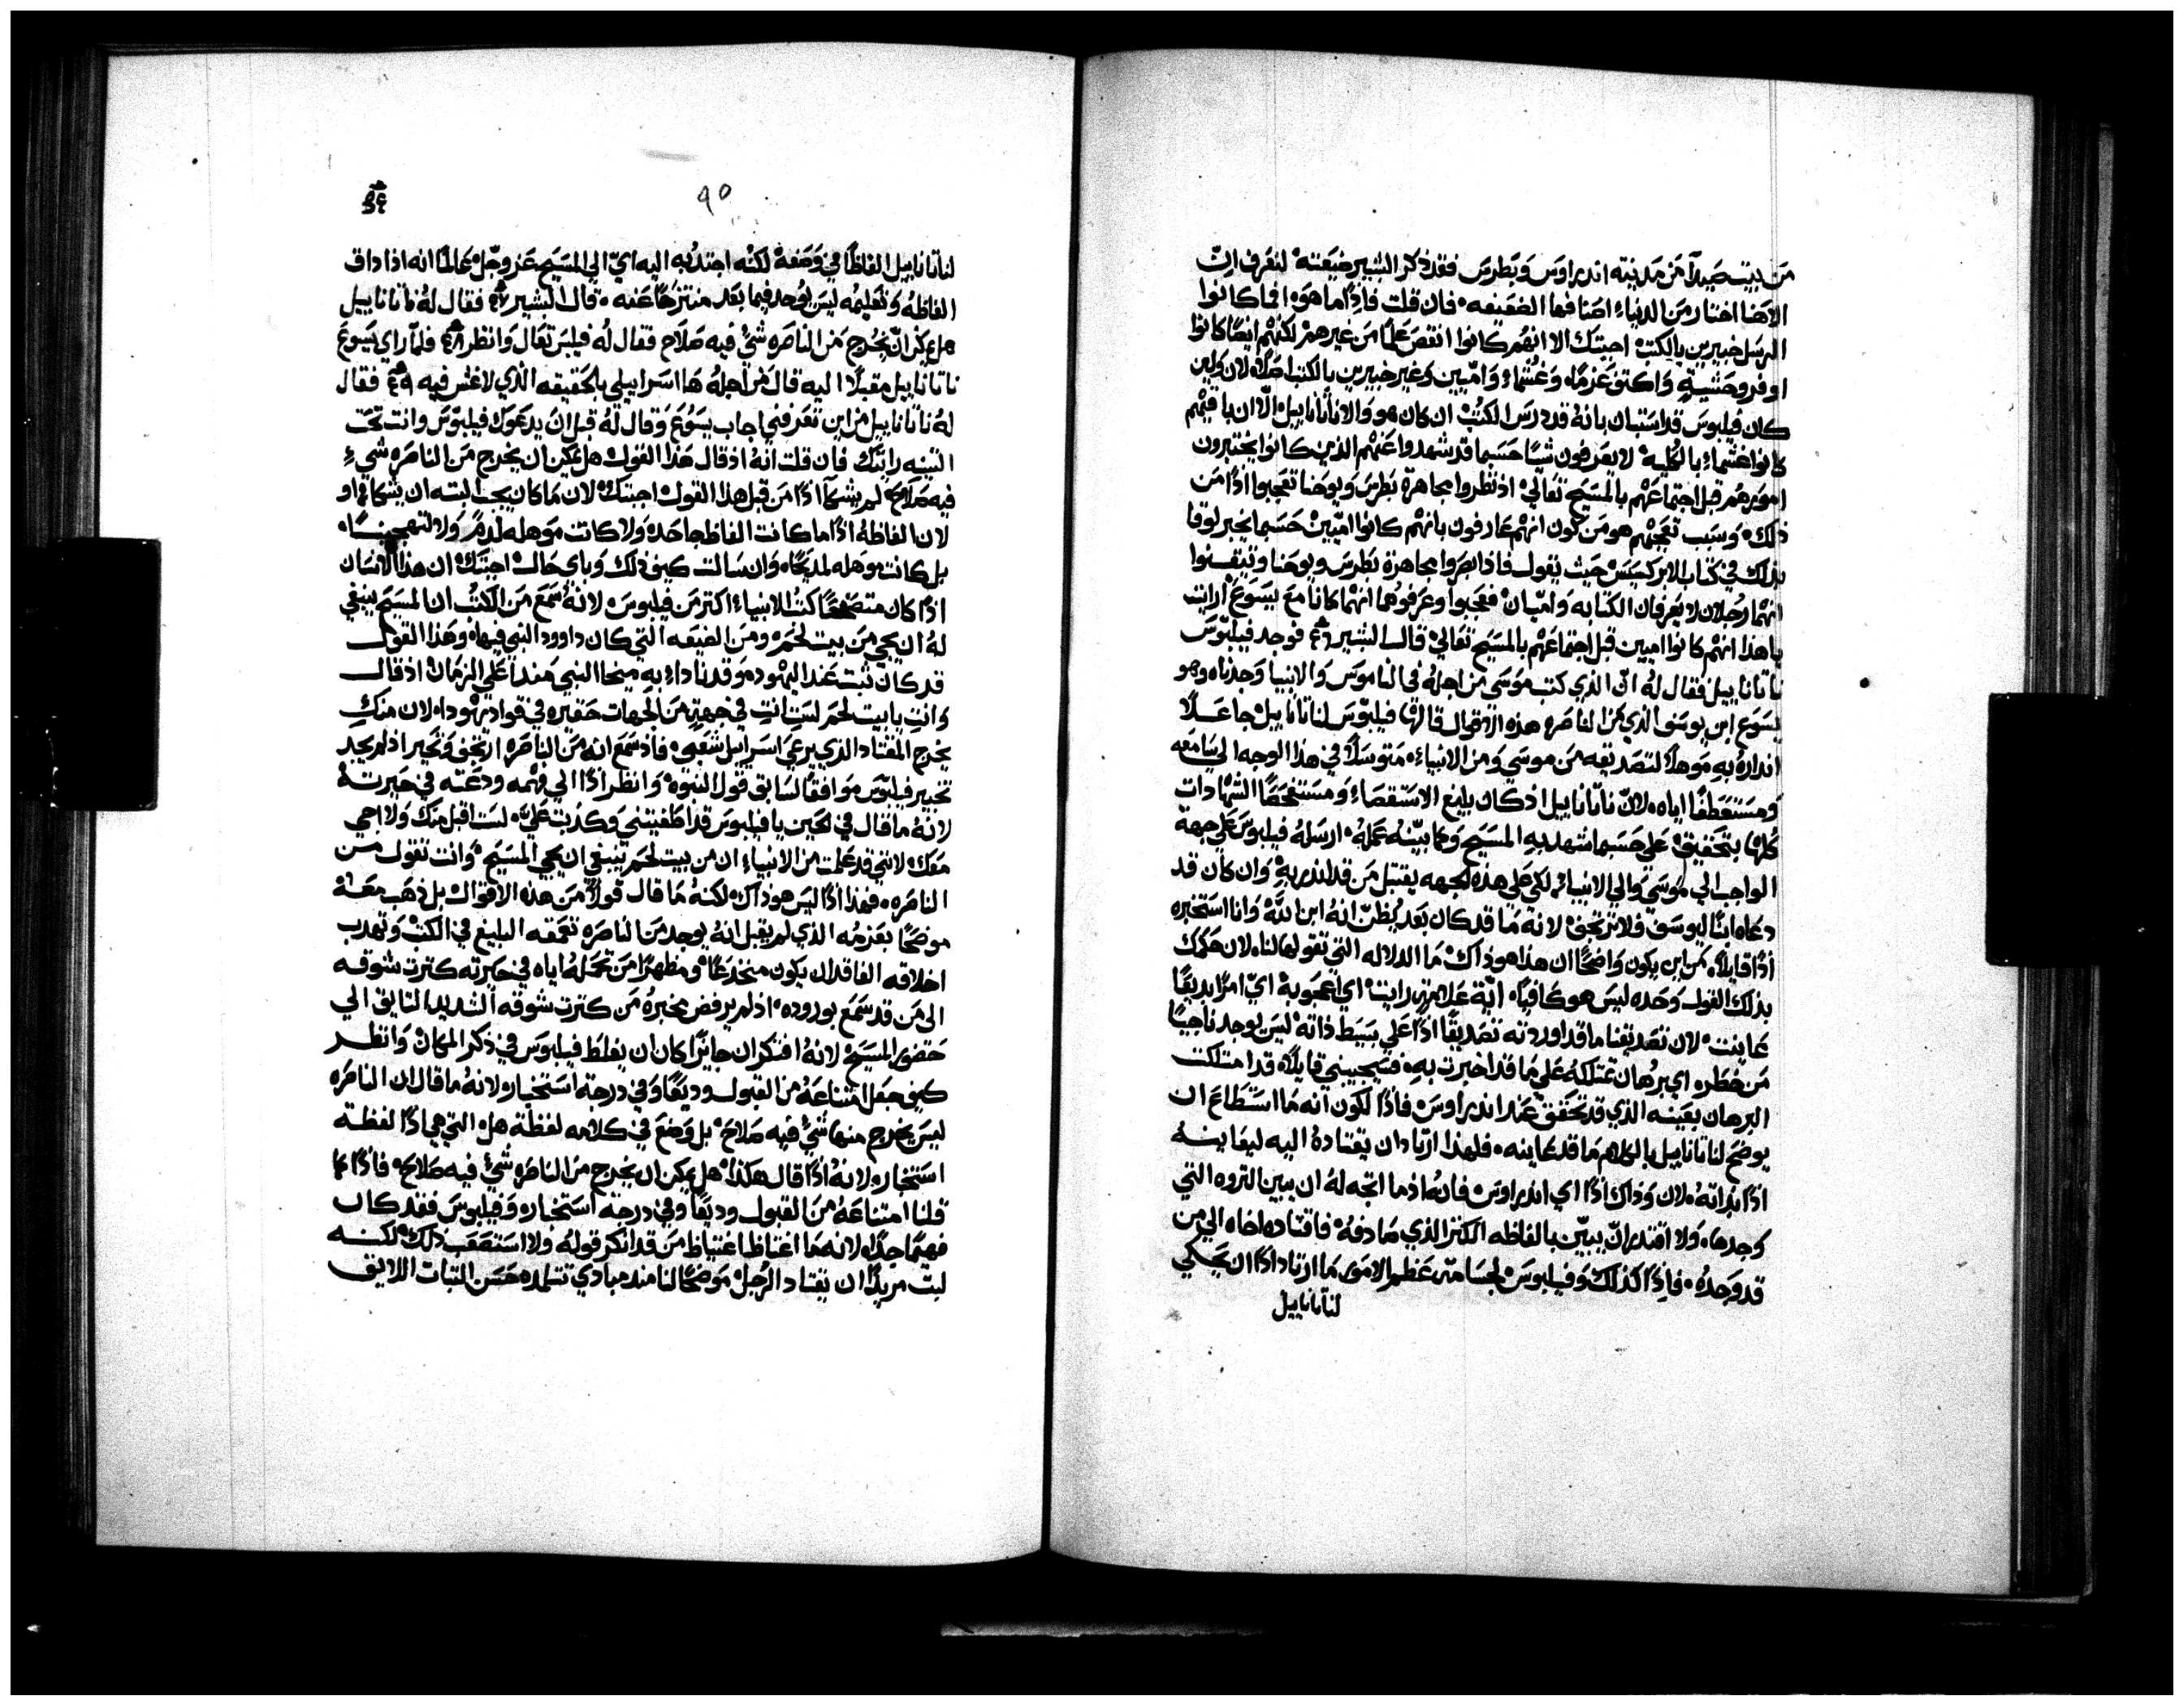 من بيت صيدا من مدينة اندراوس وبطرس فقد ذكر البشير ضيعته لتعرف ان
الاهنا اختار من الدنياء اصنافها الضعيفه فان قلت فاذا ما هو افما كانوا
الرسل خبيرين بالكتب اجيبتك الا انهم كانوا انقص علما من غيرهم لكنهم ايضا كانوا
اوفر وحشية واكتر عزما وغشماء واميين وغير خبيرين بالكتب اصلا لان ولين
كان فيلبوس قد استبان بانه قد درس الكتب ان كان هو والا ناتاناييل الا ان باقيهم
كانوا غشماء بالكليه لا يعرفون شيا حسبما قد شهدوا عنهم الذين كانوا يختبرون
امورهم قبل اجتماعهم بالمسيح تعالي اذ نظروا مجاهرة بطرس ويوحنا تعجبوا اذا من
ذلك وسبب تعجبهم هو من كون انهم عارفون بانهم كانوا اميين حسبما يخبر لوقا
بذلك في كتاب الابركسيس حيث يقول فاذ ابصروا مجاهرة بطرس ويوحنا وتيقنوا
انهما رجلان لا يعرفان الكتابه واميان فعجبوا وعرفوهما انهما كانا مع يسوع ارايت
يا هذا انهم كانوا اميين قبل اجتماعهم بالمسيح تعالي قال البشير فوجد فيلبوس
ناتاناييل فقال له ان الذي كتب موسي من اجله في الناموس والانبيا وجدناه وهو
يسوع ابن يوسف الذي من الناصره هذه الاقوال قالها فيلبوس لناتاناييل جاعلا
انداره به موهلا لتصديقه من موسي ومن الانبياء متوسلا في هذا الوجه الي سامعه
ومستعطفا اياه لان ناتاناييل اذ كان بليغ الاستقصاء ومستفحصا الشهادات
كلها بتحقيق علي حسبما شهد به المسيح وكما بينه عمله ارسله فيلبوس علي جهة
الواجب الي موسي والي الانبياء لكي علي هذه الجهه يقتبل من قد انذر به وان كان قد
دعاه ابنا ليوسف ولا ترتجف لانه ما قد كان بعد يظن انه ابن الله وانا استخبره
اذا قايلا من اين يكون واضحا ان هذا هو ذاك ما الدلاله التي تقولها لنا لان حكمك
بذلك القول وحده ليس هو كافيا اية علامة رايت اي اعجوبة اي امرا بديعا
عاينت لان تصديقنا ما قد اوردته تصديقا اذا علي بسيط ذاته ليس يوجد ناجيا
من خطره اي برهان تمتلكه علي ما قد اخبرت به فسيجيبني قايلا قد امتلكت
البرهان بعينه الذي قد تحقق عند اندراوس فاذا لكون انه ما استطاع ان
يوضح لناتاناييل بالكلام ما قد عاينه فلهذا ارتاد ان يقتاده اليه ليعاينه
اذا بذاته لان وذاك اذا اي اندراوس فانه اذ ما اتجه له ان يبين التروه التي
وجدها ولا اقتدر ان يبين بالفاظه الكنز الذي صادفه فاقتاد اخاه الي من
قد وجده فاذا كذلك وفيلبوس لجسامة عظم الامور ما ارتاد اذا ان يحكي
لناتاناييل
٩٥
لناتاناييل الفاظا في وصفه لكنه اجتذبه اليه اي الي المسيح عز وجل عالما انه اذا داق
الفاظه وتعليمه ليس يوجد فيما بعد منتزحا عنه قال البشير فقال له ناتاناييل
هل يمكن ان يخرج من الناصره شي فيه صلاح فقال له فيلبس تعال وانظر فلما راي يسوع
ناتاناييل مقبلا اليه قال من اجله ها اسراييلي بالحقيقه الذي لا غش فيه فقال
له ناتاناييل من اين تعرفني اجاب يسوع وقال له قبل ان يدعوك فيلبوس وانت تحت
التينه رايتك فان قلت انه اذ قال هذا القول هل يمكن ان يخرج من الناصره شيء
فيه صلاح لم يشكا اذا من قبل هذا القول اجيبتك لان ما كان يجب البته ان يشكا او
لان الفاظه اذا ما كانت الفاظ جاحده ولا كانت موهله لذم ولا لتهجين
بل كانت موهله لمديحا وان سالت كيف ذلك وباي حال اجيبتك ان هذا الانسان
اذا كان متصفحا كتب الانبياء اكتر من فيلبوس لانه سمع من الكتب ان المسيح ينبغي
له ان يجي من بيت لحم ومن الضيعه التي كان داوود النبي فيها وهذا القول
قد كان ثبت عند اليهود وقد نادا به ميخا النبي منذ اعلي الزمان اذ قال
وانت يا بيت لحم لست انت في جهة من الجهات حقيره في قواد يهودا لان منك
يخرج المقتاد الذي يرعي اسراييل شعبي فاذ سمع انه من الناصره ارتجف وتحير اذ لم يجد
تخبير فيلبوس موافقا لسابق قول النبوه وانظر اذا الي فهمه ودعته في حيرته
لانه ما قال في الحين يا فيلبوس قد اطغيتني وكذبت علي لست اقبل منك ولا اجي
معك لانني قد علمت من الانبياء ان من بيت لحم ينبغي ان يجي المسيح وانت تقول من
الناصره فهذا اذا ليس هو ذاك لكنه ما قال قولا من هذه الاقوال بل ذهب معه
موضحا بعزمه الذي لم يقبل انه يوجد من الناصره تعمقه البليغ في الكتب وتهدب
اخلاقه الفاقد ان يكون منخدعا ومظهرا من تحمله اياه في حيرته كترت شوقه
الي من قد سمع بوروده اذ لم يرفض مخبره من كترت شوقه الشديد التايق الي
حضور المسيح لانه افتكر ان جايزا كان ان يغلط فيلبوس في ذكر المكان وانظر
كيف جعل امتناعه من القبول وديعا وفي درجة استخباره لانه ما قال ان الناصره
ليس يخرج منها شيء فيه صلاح بل وضع في كلامه لفظة هل التي هي اذا لفظة
استخباره لانه اذا قال هكذا هل يمكن ان يخرج من الناصره شيء فيه صلاح فاذا كما
قلنا امتناعه من القبول وديعا وفي درجة استخباره وفيلبوس فقد كان
فهيما جدا لانه ما اغتاظ اغتياظ من قد انكر قوله ولا استصعب ذلك لكنه
لبت مريدا ان يقتاد الرجل موضحا لنا منذ مبادي تتلمده حسن التبات اللايق